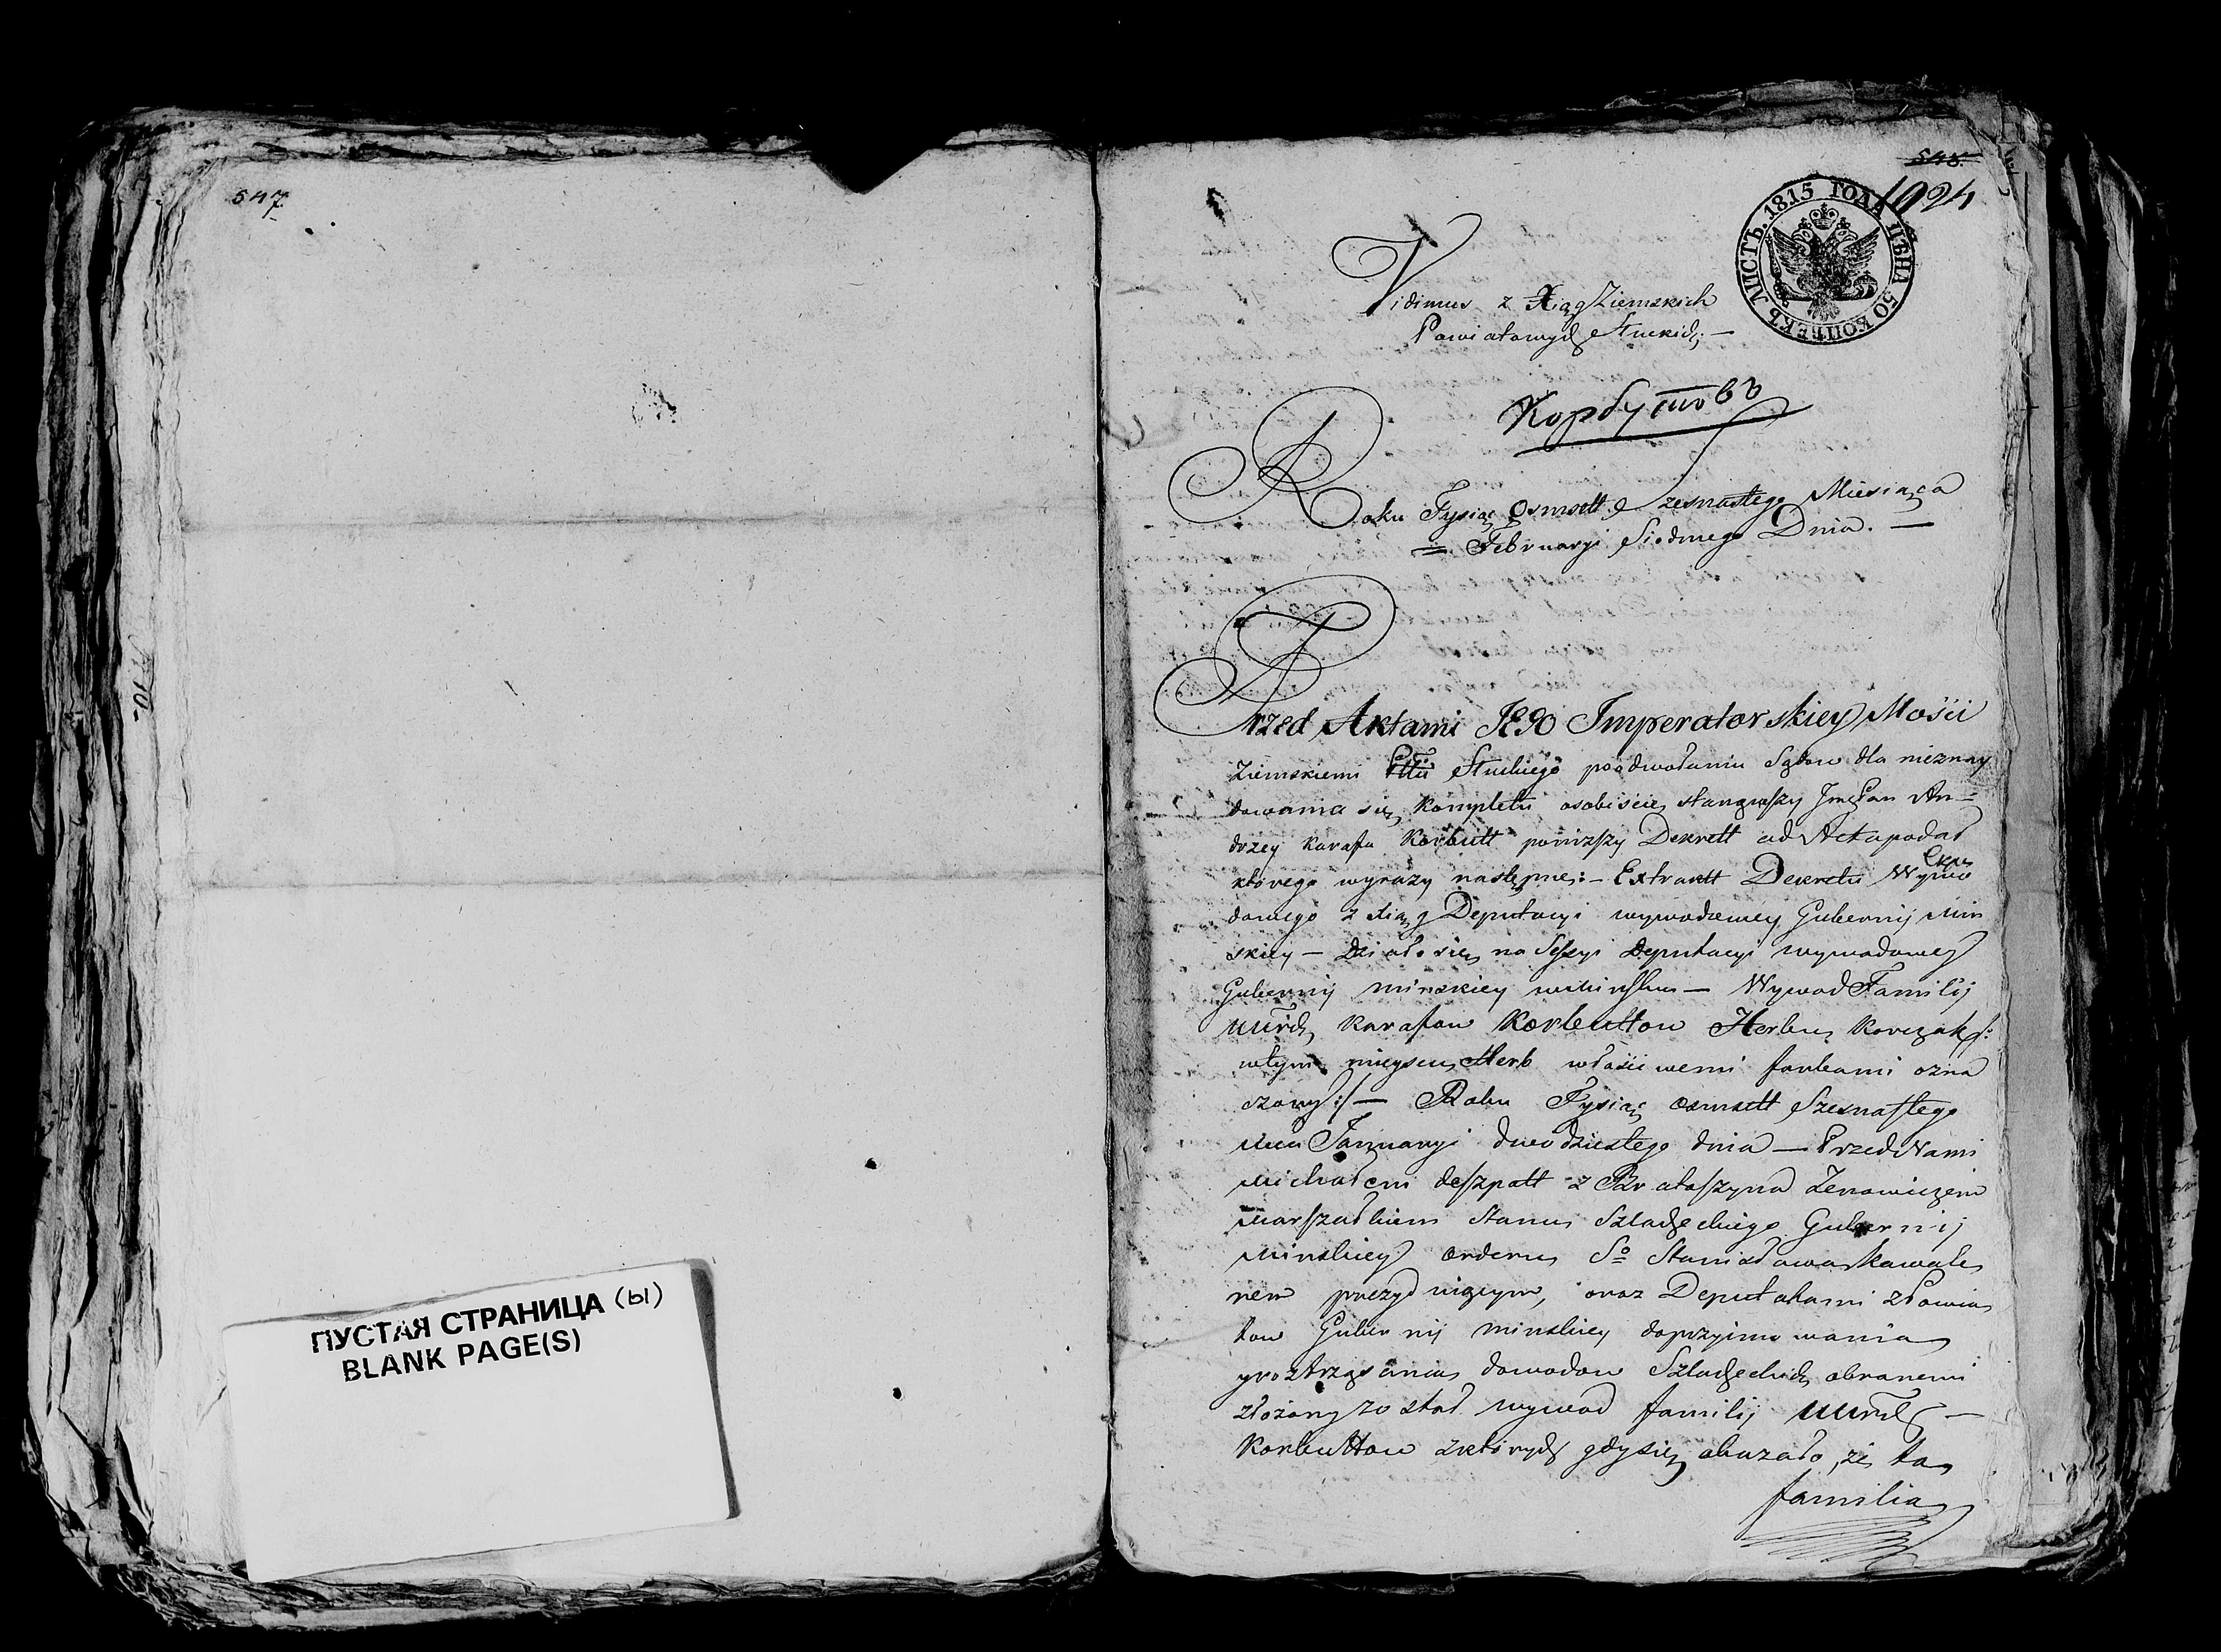 547.
№ 10.
ПУСТАЯ СТРАНИЦА (Ы)
BLANK PAGE(S)
548.
1024
ЛИСТЪ. 1815 ГОДА ЦѢНА 50 КОПѢЕКЪ
Vidimus z Xiąg Ziemskich
Powiatowych Słuckich. —
Корбутовъ
Roku Tysiąc Osmsett Szesnastego Miesiąca
= Februaryi Siodmego Dnia. —
Przed Aktami JEGO Imperatorskiey Mości
Ziemskiemi Pttu Słuckiego poodwołaniu Sądow dla nieznay
dowania się kompletu osobiście stanąwszy Jmć Pan An=
drzey Karafa Korbutt poniższy Dekrett ad Acta podał
którego wyrazy następne:— Extraktt Dekretu Wywo
dowego z Xiąg Deputacyi wywodowey Gubernij Miń
skiey — Działo się na Sessyi Deputacyi wywodowey
Gubernij Minskiey w Minsku — Wywod Familij
Urodz Karafow Korbuttow Herbu Korczak /:
w tym mieyscu Herb właściwemi farbami ozna
czony :/ — Roku Tysiąc osmsett Szesnastego
Mca Januaryi dwodziestego dnia — Przed Nami
Michałem deszpott z Bratoszyna Zenowiczem
Marszałkiem Stanu Szlacheckiego Gubernij
Minskiey orderu So Stanisława Kawale
rem prezyduiącym, oraz Deputatami z Powia
tow Gubernij Minskiey do przyimowania
y roztrząsania dowodow Szlacheckich obranemi
złożony został wywod familij Urodz —
Korbuttow z ktorych gdy się okazało, że ta
familia